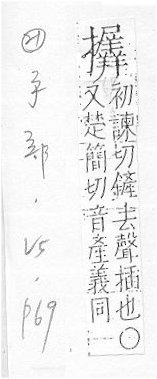 初諫切鏟去聲插也○
又楚簡切音產義同
手部.15.P69